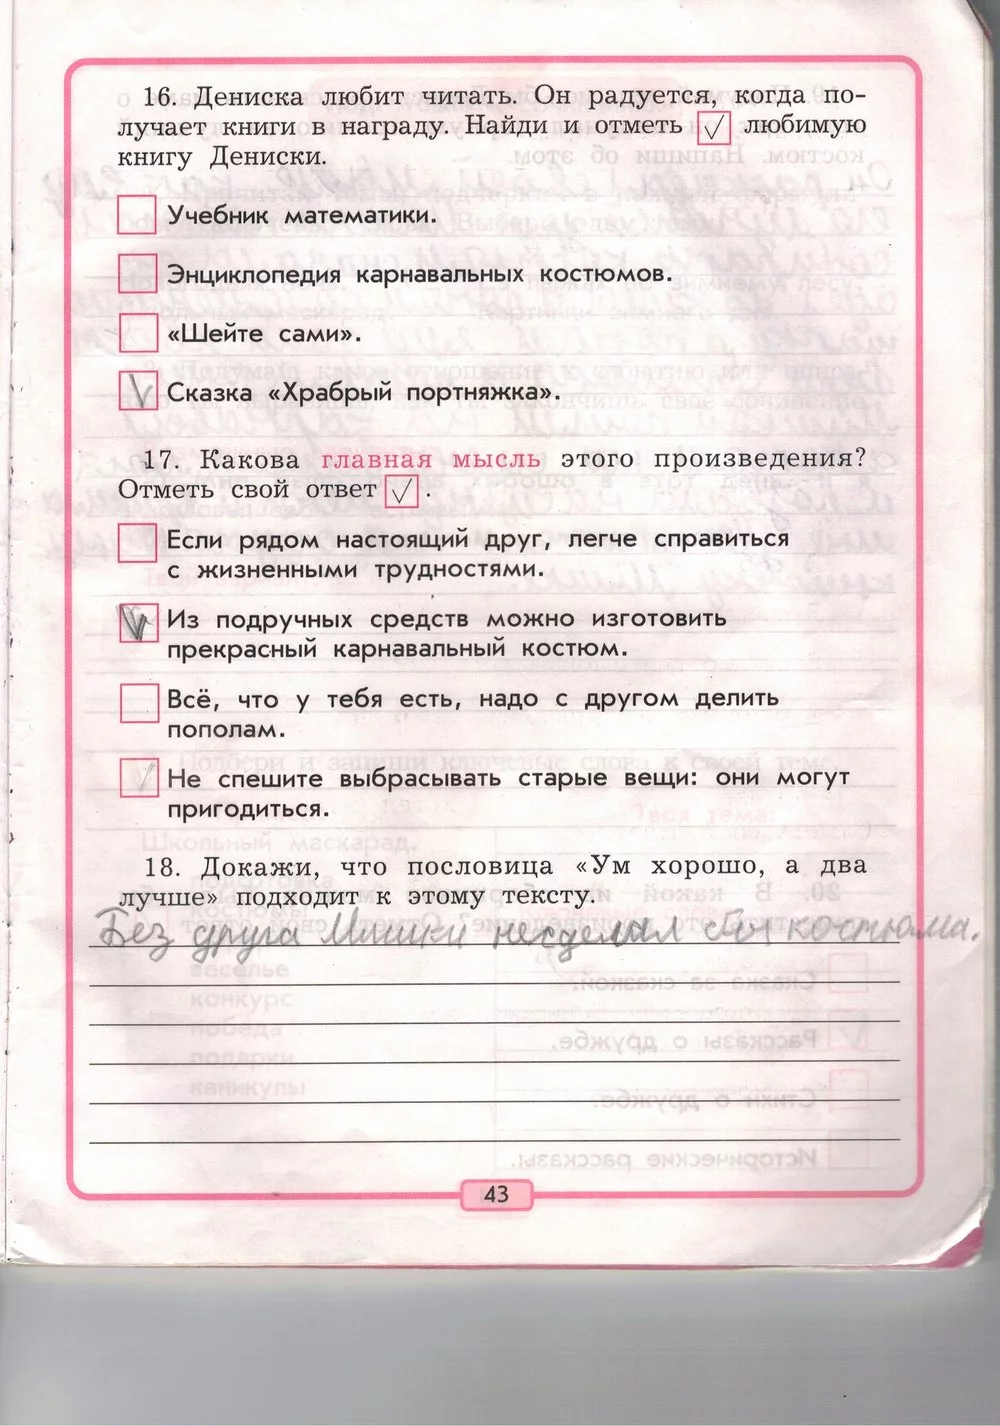 16. Дениска любит читать. Он радуется, когда по-
лучает книги в награду. Найди и отметь ✓ любимую
книгу Дениски.
Учебник математики.
Энциклопедия карнавальных костюмов.
«Шейте сами».
Сказка «Храбрый портняжка».
17. Какова главная мысль этого произведения?
Отметь свой ответ ✓ .
Если рядом настоящий друг, легче справиться
с жизненными трудностями.
Из подручных средств можно изготовить
прекрасный карнавальный костюм.
Всё, что у тебя есть, надо с другом делить
пополам.
Не спешите выбрасывать старые вещи: они могут
пригодиться.
18. Докажи, что пословица «Ум хорошо, а два
лучше» подходит к этому тексту.
Без друга Мишки несделал бы костюма.
43